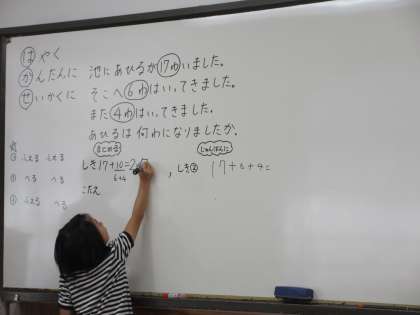 はやく
かんたんに
せいかくに
池にあひるが17わいました。
そこへ6わはいってきました。
また4わはいってきました。
あひるは何わになりましたか。
まとめる
しき17+10=27
6+4
こたえ
じゅんばんに
しき② 17+6+4=
ふえる ふえる
へる へる
ふえる へる